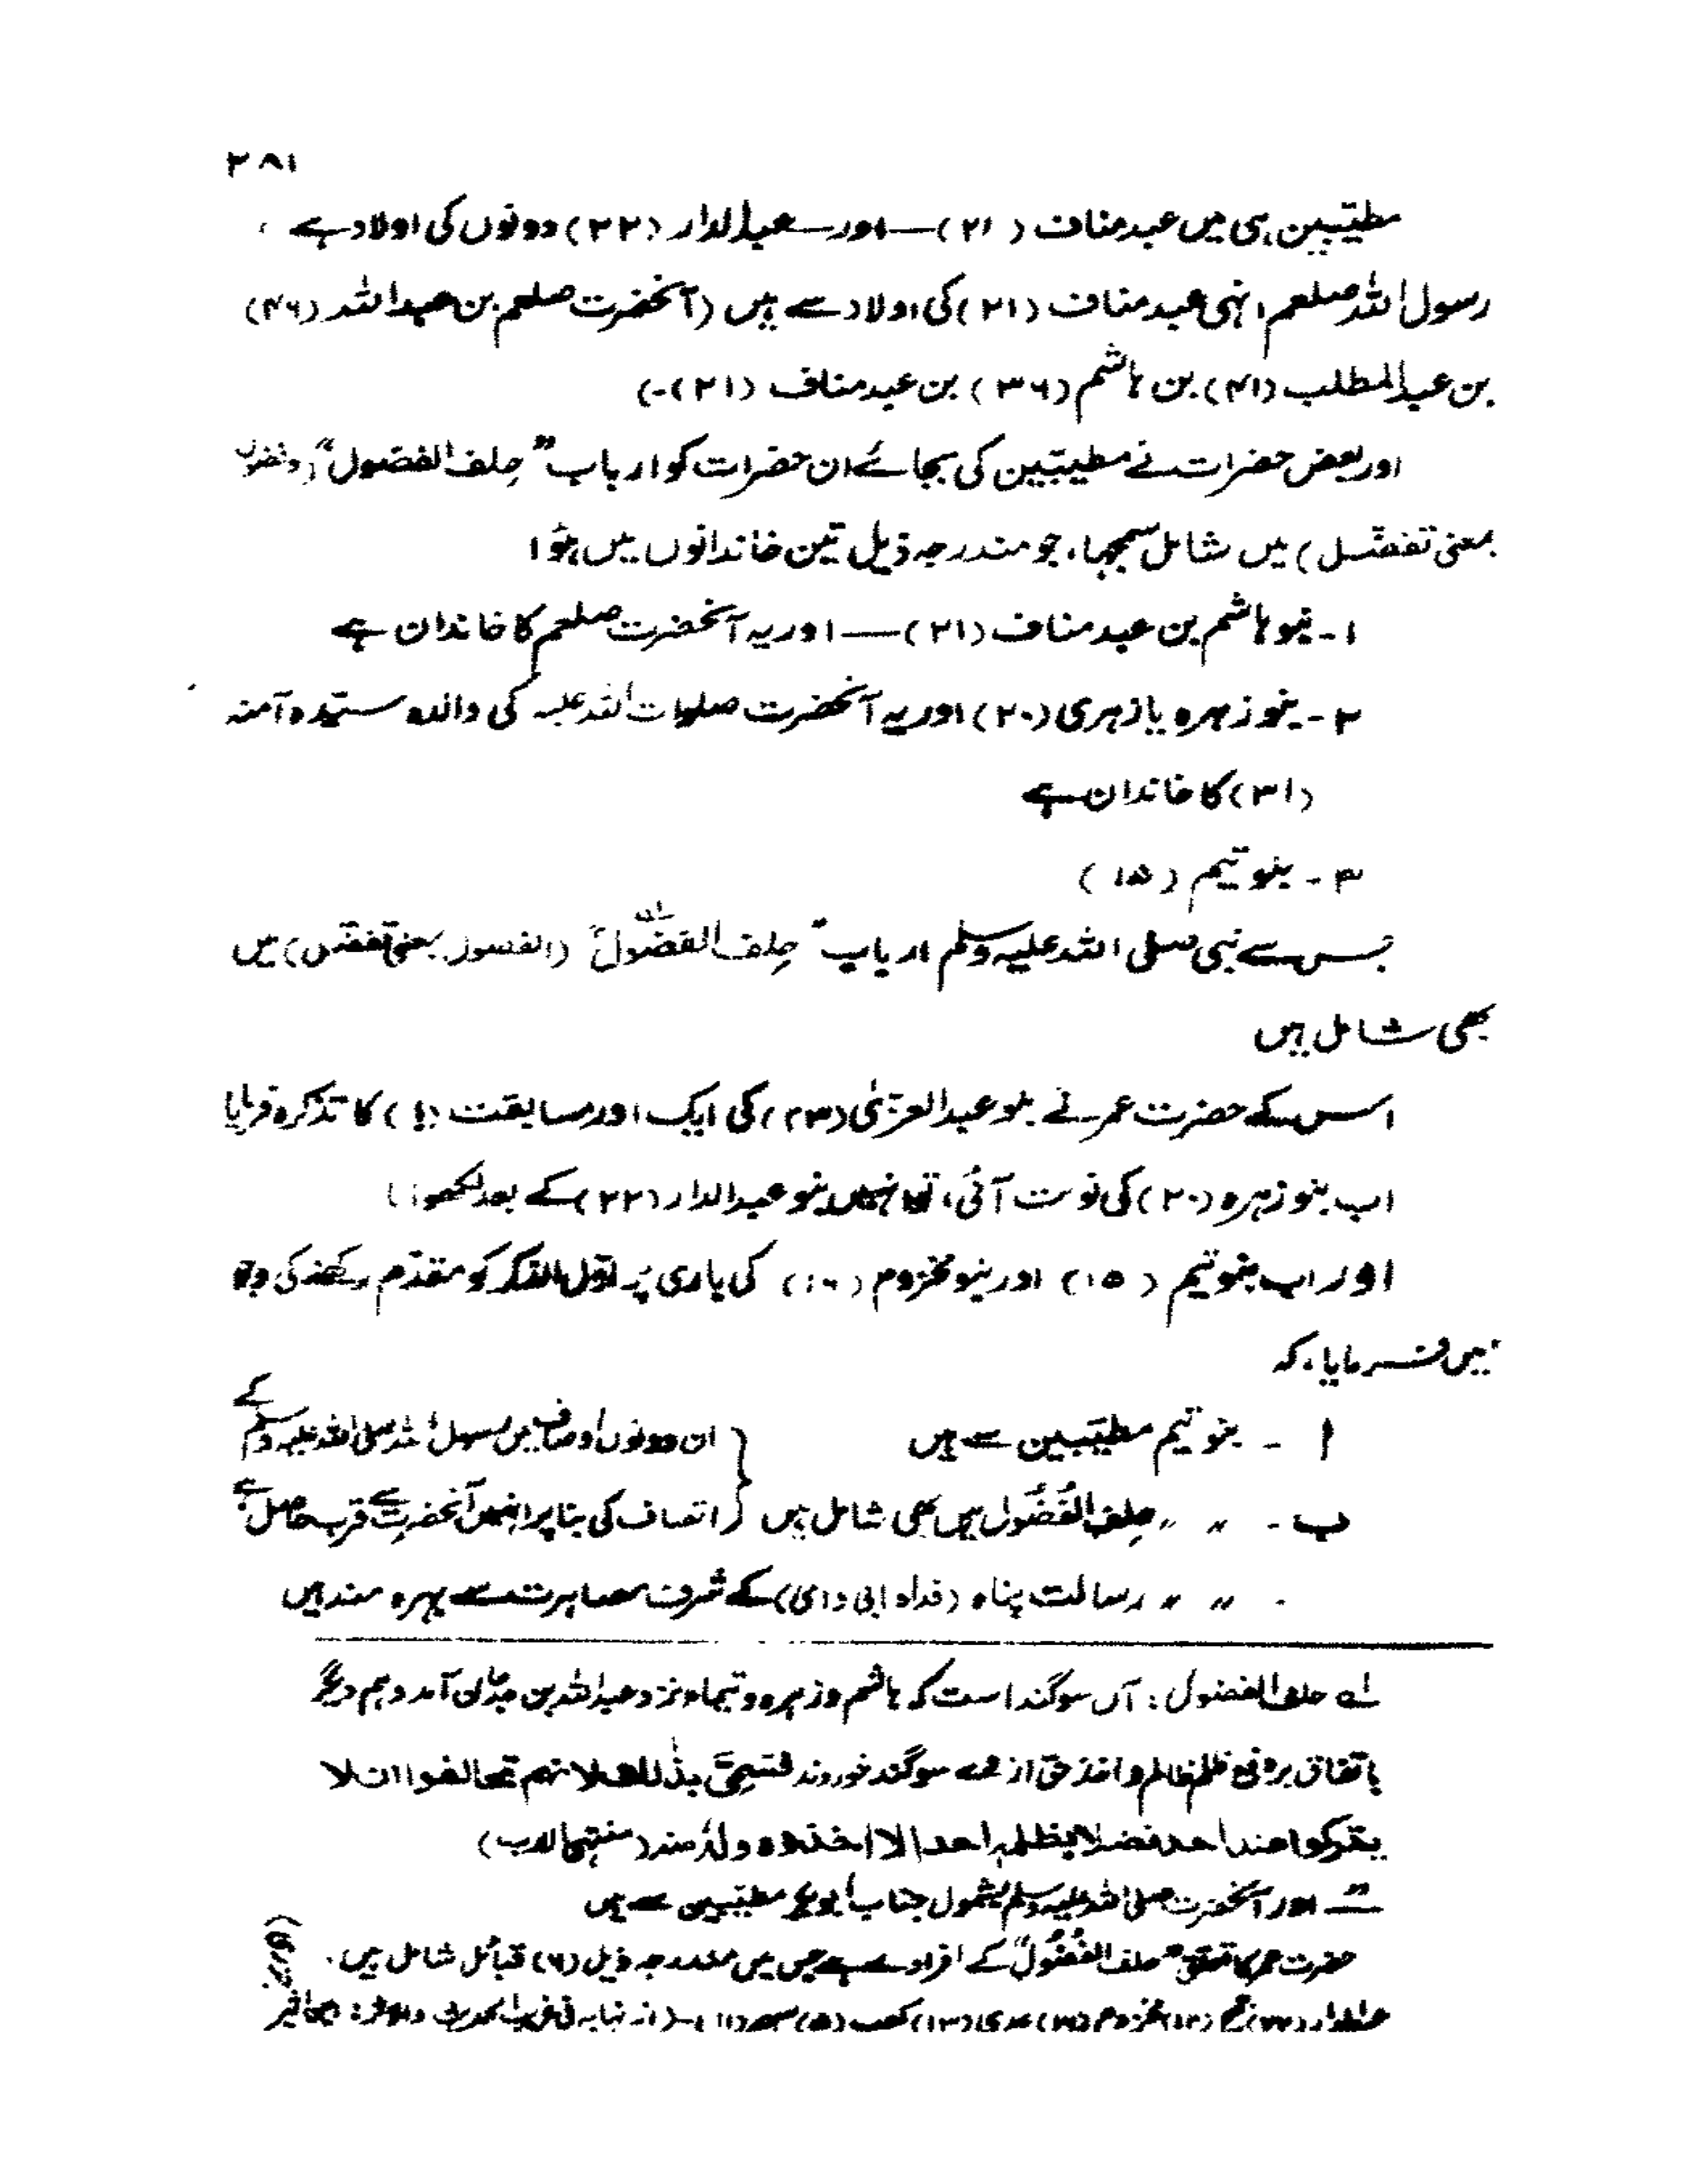 ۲۸۱
مطیّبین ہی میں عبد مناف (۲۱) — اور — عبدالدار (۲۲) دونوں کی اولاد ہے
رسول اللہ صلعم انہی عبد مناف (۲۱) کی اولاد سے ہیں (آنحضرت صلعم بن عبداللہ (۴۶)
بن عبدالمطلب (۴۱) بن ہاشم (۳۶) بن عبد مناف (۲۱)۔)
اور بعض حضرات نے مطیبّین کی بجائے ان حضرات کو ارباب "حِلف الفضول" (وفضول
بمعنی تفضّل) میں شامل سمجھا، جو مندرجہ ذیل تین خاندانوں میں ہؤا
۱۔ بنو ہاشم بن عبد مناف (۲۱) — اور یہ آنحضرت صلعم کا خاندان ہے
۲۔ بنو زہرہ یا زہری (۲۰) اور یہ آنحضرت صلوات اللہ علیہ کی والدہ سیّدہ آمنہ
(۳۱) کا خاندان ہے
۳۔ بنو تیم (۱۵)
جس سے نبی صلی اللہ علیہ وسلم ارباب "حِلف الفضُول" (الفضول بمعنی تفضّل) میں
بھی شامل ہیں
اس کے حضرت عمر نے بنو عبدالعزّیٰ (۲۳) کی ایک اور مسابقت (!) کا تذکرہ فرمایا
اب بنو زہرہ (۲۰) کی نوبت آئی، تو انہیں بنو عبدالدار (۲۲) کے بعد لکھوا!
اور اب بنو تیم (۱۵) اور بنو مخزوم (۱۶) کی باری پر اوّل الذکر کو مقدّم رکھنے کی وجہ
میں فرمایا، کہ
ا ۔ بنو تیم مطیّبین سے ہیں } ان دونوں اوصاف میں رسول اللہ صلی اللہ علیہ وسلم کے
ب ۔ 〃 〃 حِلف الفُضُول میں بھی شامل ہیں } اتصاف کی بنا پر انہیں آنحضرت سے قرب حاصل ہے
۔ 〃 〃 رسالت پناہ (فداہ ابی و امی) کے شرف مصاہرت سے بہرہ مند ہیں
لہ حلف الفضول : آں سوگند است کہ ہاشم و زہرہ و تیماہ نزد عبداللہ بن جدعان آمد و ہم دیگر
باتفاق بر دفع ظلم ظالم و اخذ حق از سوگند خوردند فسمی بذٰلک لانہم تحالفوا ان لا
یترکوا عند احد فضلا یظلمہ احدا الا اخذوہ ولہ منہ (منتہی الارب)
اور آنحضرت صلی اللہ علیہ وسلم بشمول جناب ابوبکر مطیّبین سے ہیں
حضرت عمر کا تعلق "حلف الفُضُول" کے افراد سے ہے جس میں مندرجہ ذیل (۶) قبائل شامل ہیں۔
عبدالدار (۲۲) جمح (۱۲) مخزوم (۱۶) عدی (۱۳) کعب (۵) سہم (۱۱) — (از نہایہ فی غریب الحدیث والاثر: